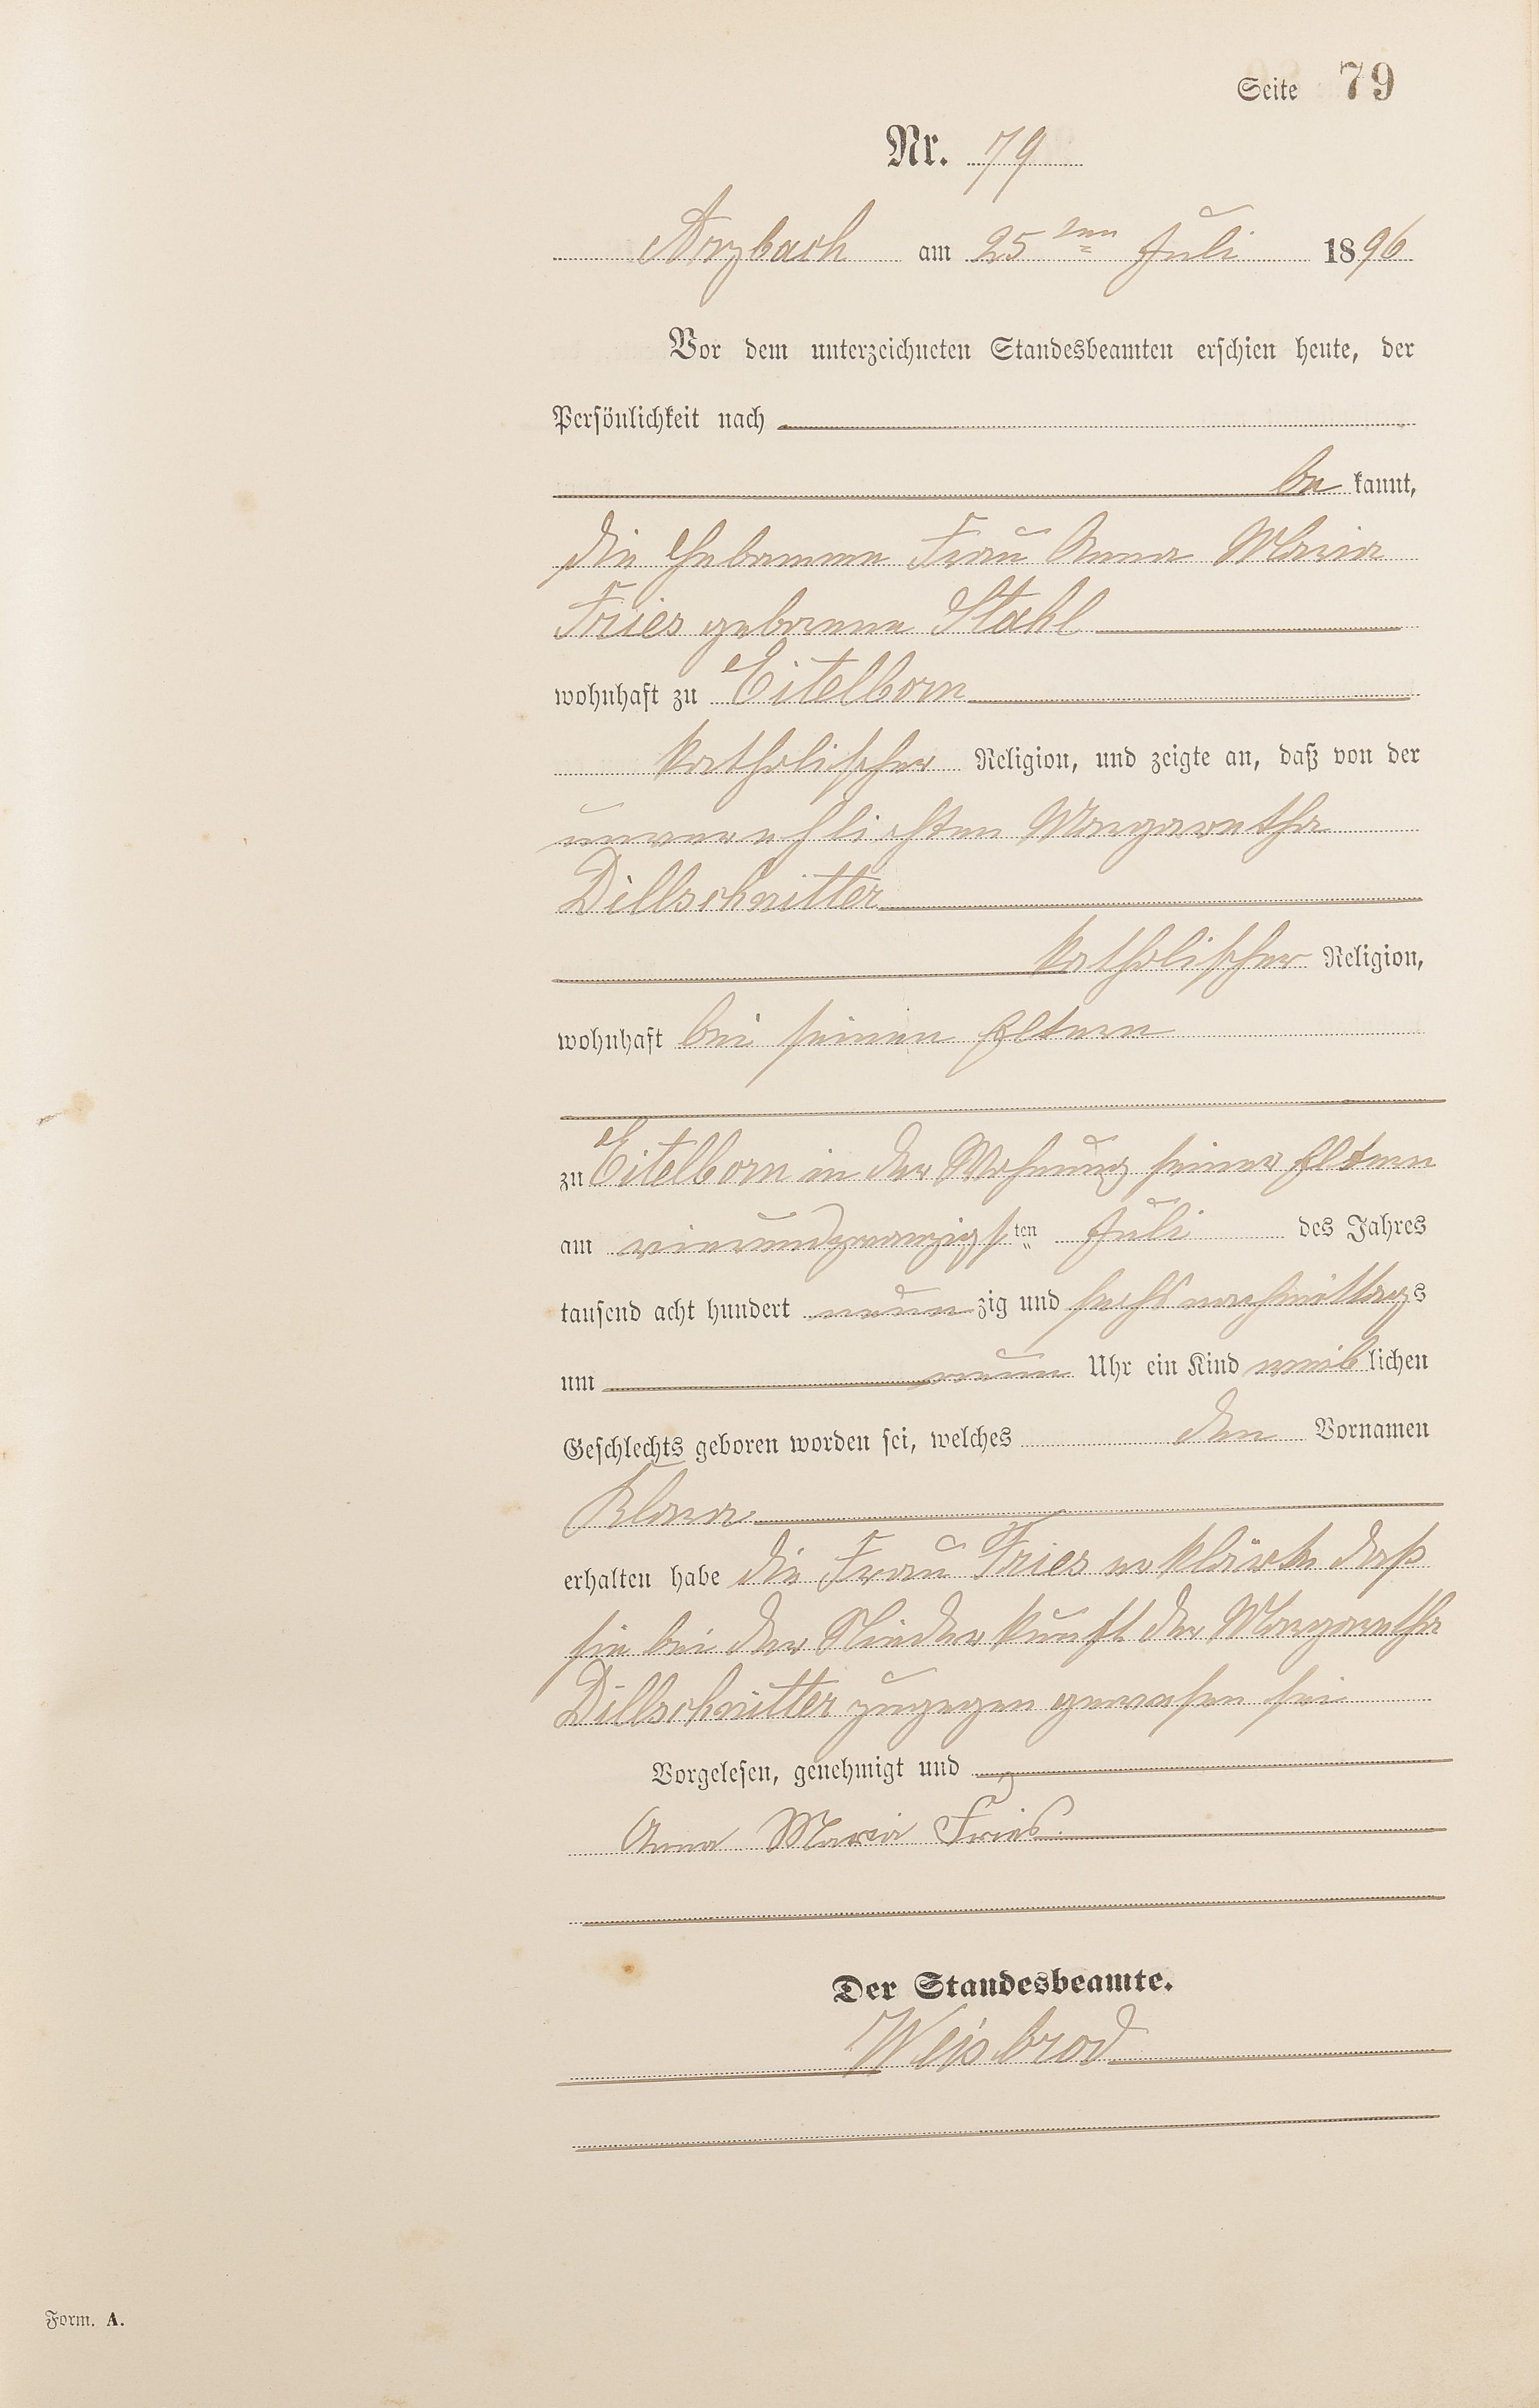 Seite 79
Nr. 79
Arzbach am 25ten Juli 1896
Vor dem unterzeichneten Standesbeamten erschien heute, der
Persönlichkeit nach
be kannt,
die Hebamme Frau Anna Maria
Fries geborene Stahl
wohnhaft zu Eitelborn
katholischer Religion, und zeigte an, daß von der
unverehlichten Margaretha
Dillschnitter
katholischer Religion,
wohnhaft bei seinen Eltern
zu Eitelborn in der Wohnung seiner Eltern
am vierundzwanzigsten Juli des Jahres
tausend acht hundert neunzig und sechs nachmittags
um neun Uhr ein Kind weiblichen
Geschlechts geboren worden sei, welches den Vornamen
Klara
erhalten habe die Frau Fries erklärte daß
sie bei der Niederkunft der Margaretha
Dillschnitter zugegen gewesen sei
Vorgelesen, genehmigt und
Anna Maria Fries.
Der Standesbeamte.
Weisbrod
Form. A.